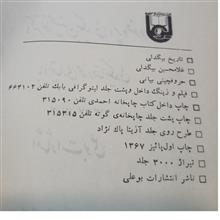 تاریخ بیگدلی
غلامحسین بیگدلی
حروفچینی بیانی
فیلم و زینگ داخل وپشت جلد لیتوگرافی بابک تلفن ۶۶۳۱۰۲
چاپ داخل کتاب چاپخانه احمدی تلفن ۳۱۵۰۹۰
چاپ پشت جلد چاپخانه‌ی گوته تلفن ۳۱۵۳۱۵
طرح روی جلد آذیتا پاک نژاد
چاپ اول پائیز ۱۳۶۷
تیراژ ۳۰۰۰ جلد
ناشر انتشارات بوعلی